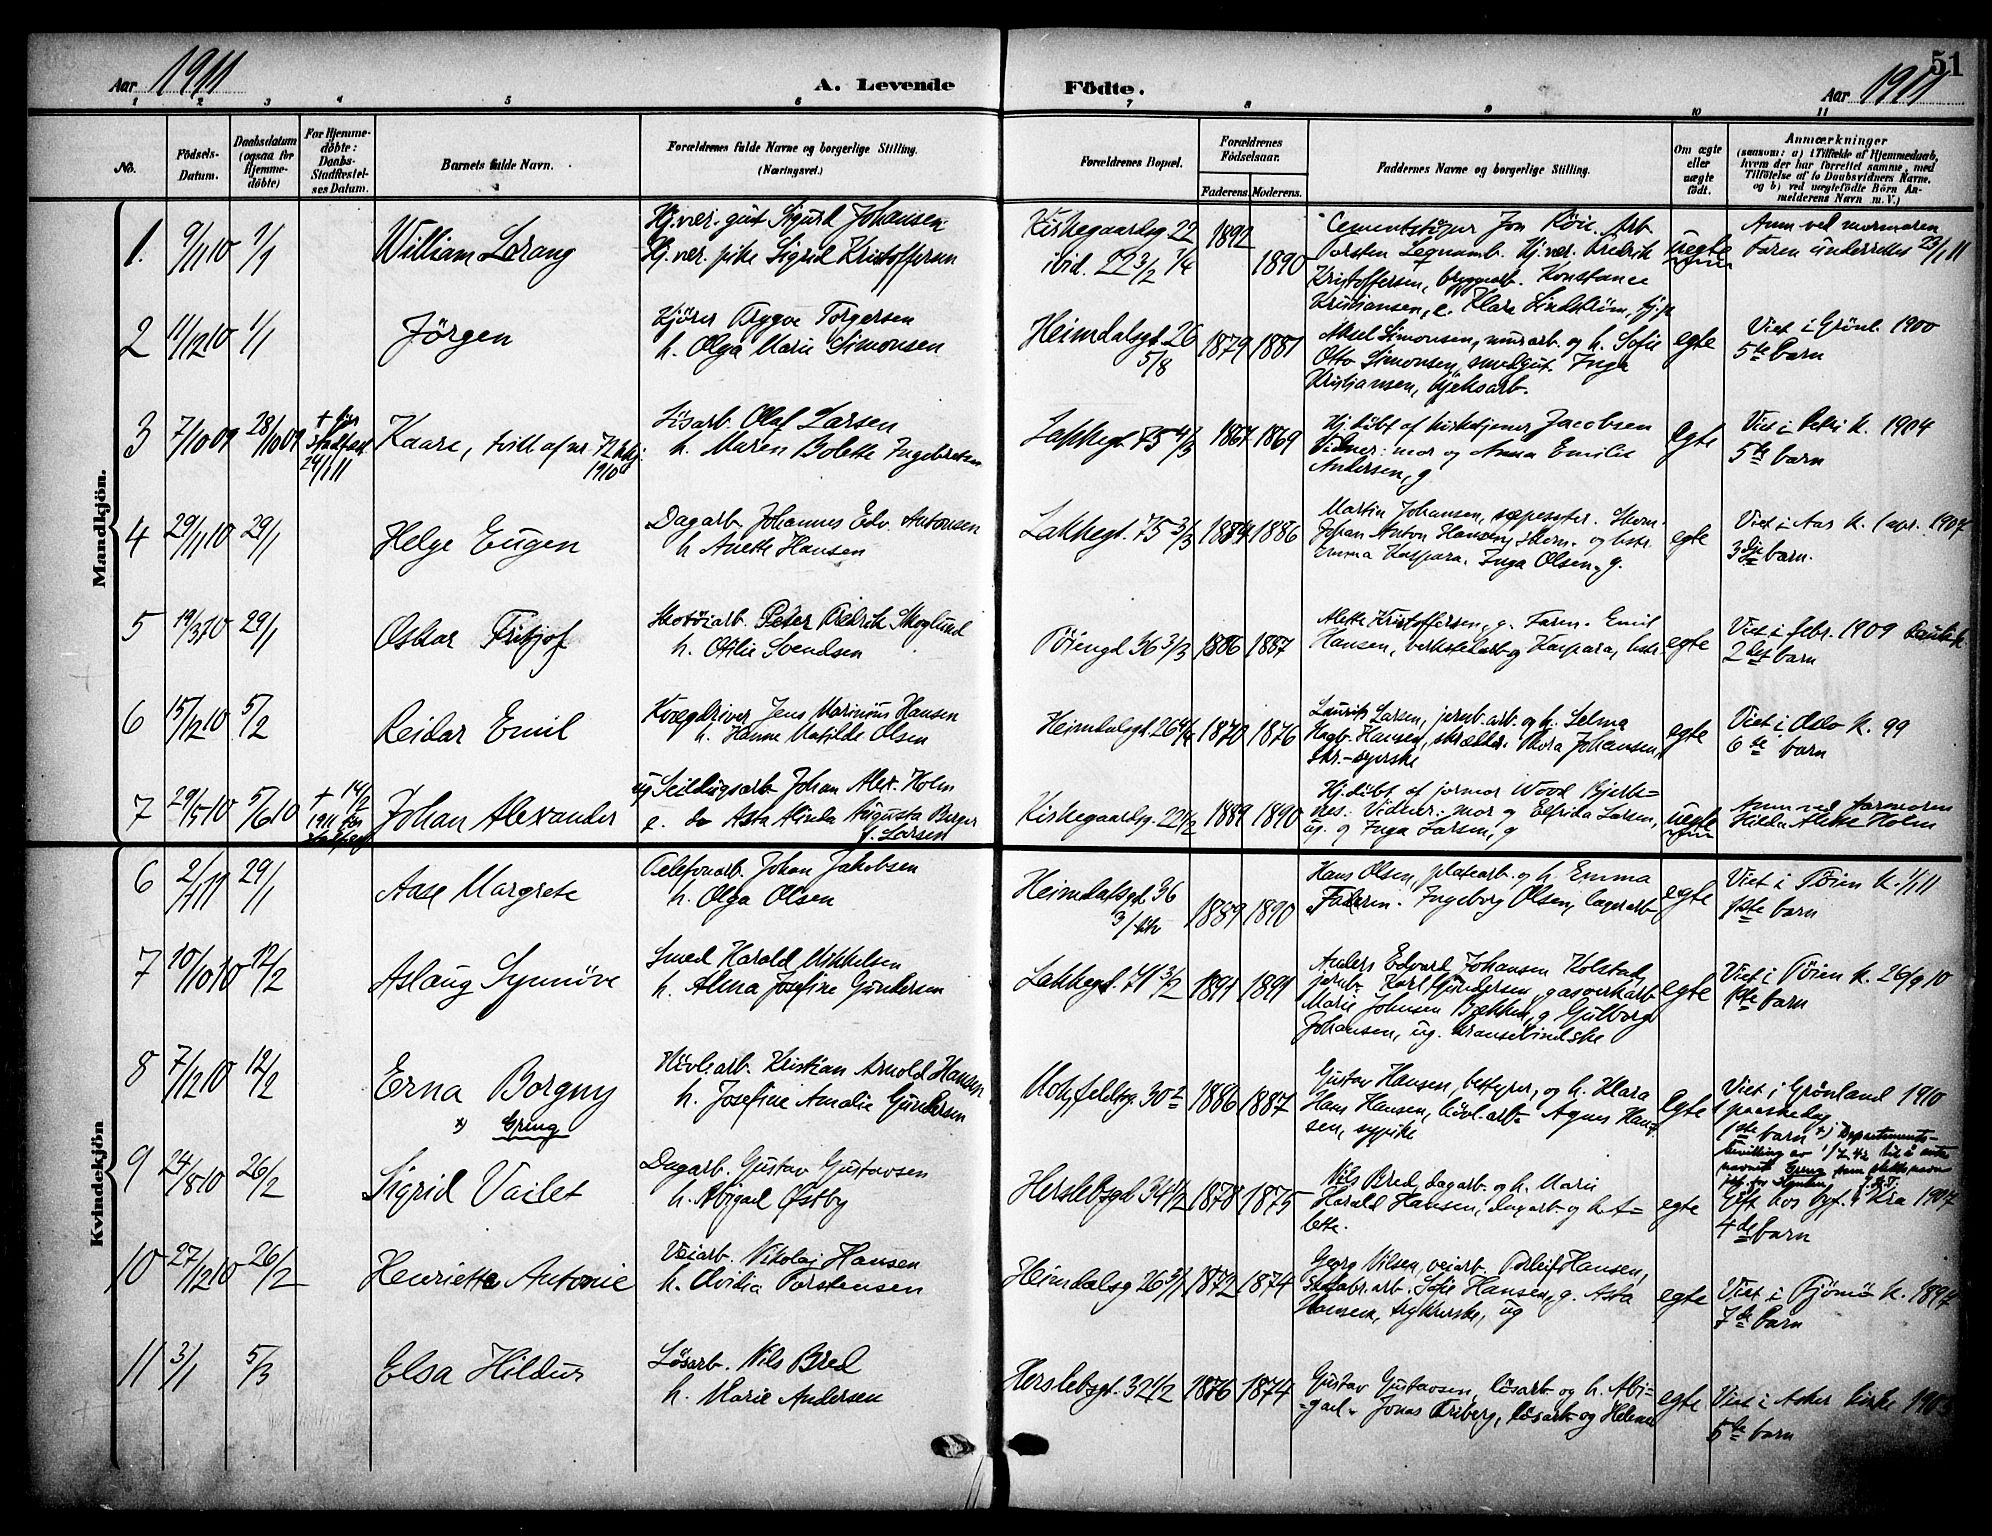 51
Aar 1911
A. Levende
Födte.
Aar 1911
1 2 3 4 5 6 7 8 9 10 11
No.
Födsels-
Datum.
Daabsdatum
(ogsaa for
Hjemme-
döbte)
For Hjemme-
döbte:
Daabs-
Stadfæstel-
ses Datum.
Barnets fulde Navn.
Forældrenes fulde Navne og borgerlige Stilling.
(Næringsvei.)
Forældrenes Bopæl.
Forældrenes
Födselsaar.
Faderens. Moderens.
Faddernes Navne og borgerlige Stilling.
Om ægte
eller
uægte
födt.
Anmærkninger
(saasom: a) i Tilfælde af Hjemmedaab,
hvem der har forrettet samme, med
Tilföielse af to Daabsvidners Navne,
og b) ved uægtefödte Börn An-
melderens Navn m. V.)
Mandkjön.
1. 9/11 10 1/1
William Lorang
Hj.vær. gut Sigurd Johansen
Hj.vær. pike Sigrid Kristoffersen
Kirkegaardsg 22
ibid. 22 3/2 1/4
1892
1890
Cementstöper Jon Röie. Arb.
Torsten Legnamb. Hj.vær. Fredrik
Kristoffersen, bryggearb. Konstance
Kristiansen, e. Klara Lindström, hj.p
uegte
Anm ved mormoren
Faren underrettet 23/1 11
2 11/12 10 1/1
Jörgen
Kjörer Trygve Torgersen
h. Olga Marie Simonsen
Heimdalsgt 26
5/8
1879 1881
Aksel Simonsen, murarb. og h. Sofie
Otto Simonsen, smedgut. Inga
Kristiansen, kjeksarb.
egte
Viet i Grönl. 1900
5te barn
3 7/10 09 28/10 09
+ för
stadfæst
24/1 11
Kaare, tvill af nr. 72 kkj.
1910
Lösarb. Olaf Larsen
h. Maren Bolette Ingebretsen
Lakkegt. 75 4/3
1867 1869
Hj.döbt af kirketjener Jacobsen
Vidner: mor og Anna Emilie
Andersen, g
egte
Viet i Petri k. 1904
5te barn
4 29/11 10 29/1
Helge Eugen
Dagarb. Johannes Edv. Antonsen
h. Anette Hansen
Lakkegt. 75 3/3
1884 1886
Martin Johansen, sæpesyder. Skom.
Johan Anton Hansen, skom. og hstr.
Emma Kaspara. Inga Olsen, g.
egte
Viet i Aas k. 1 apr. 1907
3die barn.
5 19/3 10 29/1
Oskar Fritjof
Skotöiarb. Peter Fredrik Skoglund
h. Otilie Svendsen
Töiengt 36 3/3
1886 1887
Alette Kristoffersen, g. Farm. Emil
Hansen, verkstedarb og Kaspara, hstr
egte
Viet i febr. 1909
2det barn
6 15/12 10 5/2
Reidar Emil
Kvægdriver Jens Marinius Hansen
h. Hanne Matilde Olsen
Heimdalsgt 26 4/4
1870 1876
Laurits Larsen, jernb.arb. og h. Selma
Hagb. Hansen, skrædder. Thora Johansen,
skr.-syerske
egte
Viet i Oslo k. 99
6te barn
7 29/5 10 5/6 10
+ 14/2
1911 för
stadfæst
Johan Alexander
ug Seildugsarb Johan Alex. Holm
e. do Asta Alinda Augusta Berger
f. Larsen
Kirkegaardsg. 22 1/2
1889 1890
Hj.döbt af jormor Wood Bjerke-
nes. Vidner: mor og Elfrida Larsen,
ug. g Inga Larsen, g
uegte
Anm ved farmoren
Hilda Alette Holm
Kvindekjön
6 2/1 11 29/1
Aase Margrete
Telefonarb. Johan Jakobsen
h. Olga Olsen
Heimdalsgt 36
3/
1889 1890
Hans Olsen, platearb. og h. Emma
Faderen. Ingeborg Olsen, lagerarb
egte
Viet i Töien k. 1/1 11
1ste barn
7 10/10 10 12/2
Aslaug Synnöve
Smed Harald Mikkelsen
h. Alma Josefine Gundersen
Lakkegt. 71 3/2
1891 1891
Anders Edvard Johansen Kolstad,
jernb. Karl Gundersen, gasverkarb
Marie Johnsen Bækken, g Gulborg
Johansen, ug. kransebinderske
egte
Viet i Töien k. 26/9 10
1ste barn
8 7/12 10 12/2
Erna Borgny
x) Gring
Hövlearb. Kristian Arnold Hansen
h. Josefine Amalie Gundersen
Motzfeldtsg. 30
1886 1887
Gustav Hansen, bestyrer, og h. Klara
Hans Hansen, hövl.arb. Agnes Han-
sen, sypike
egte
Viet i Grönland 1910
1 paaskedag
1ste barn x) Departements-
9 24/8 10 26/2
Sigrid Vailet
Dagarb. Gustav Gustavsen
h. Abigael Østby
Herslebsgt 34 1/2
1878 1875
Nils Bred, dagarb. og h. Marie
Harald Hansen, dagarb og h. A-
lette.
egte
Gift hos byf. i Kra 1907
4de barn
10 27/12 10 26/2
Henriette Antonie
Veiarb. Nikolaj Hansen
h. Ovidia Torstensen
Heimdalsg 26 3/1
1872 1874
Georg Nilsen, veiarb. Torleif Hansen,
Skofabr.arb. Sofie Hansen, g. Asta
Hansen, trykkerske, ug
egte
Viet i Tjömö k. 1897
7de barn
11 3/1 5/3
Elsa Hildur
Lösarb. Nils Bred
h. Marie Andersen
Herslebsgt. 32 1/2
1876 1874
Gustav Gustavsen, lösarb og h. Abi-
gael. Jonas Friberg, lösarb og Helene
egte
Viet i Asker kirke
5te barn